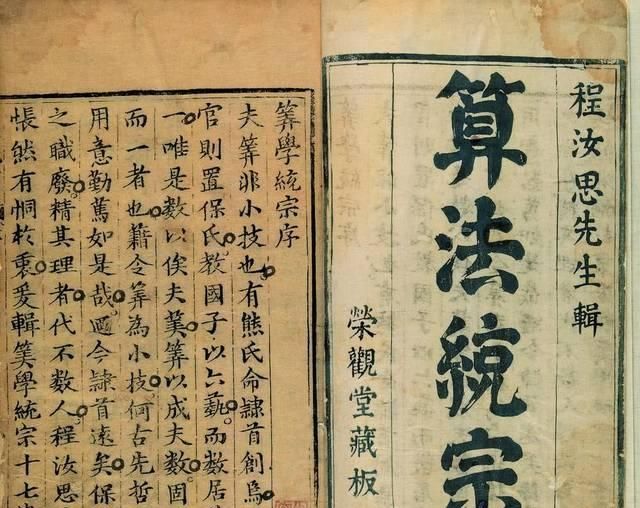 程汝思先生輯
算法統宗
榮觀堂藏板
筭學統宗序
夫筭非小技也有熊氏命隷首創爲
官則置保氏教國子以六藝而數居
一唯是數以俟夫筭筭以成夫數固
而一者也籍令筭為小技何古先哲
用意勤篤如是哉迺今隷首遠矣保
之職廢精其理者代不數人程汝思
悵然有恫於衷爰輯筭學統宗十七